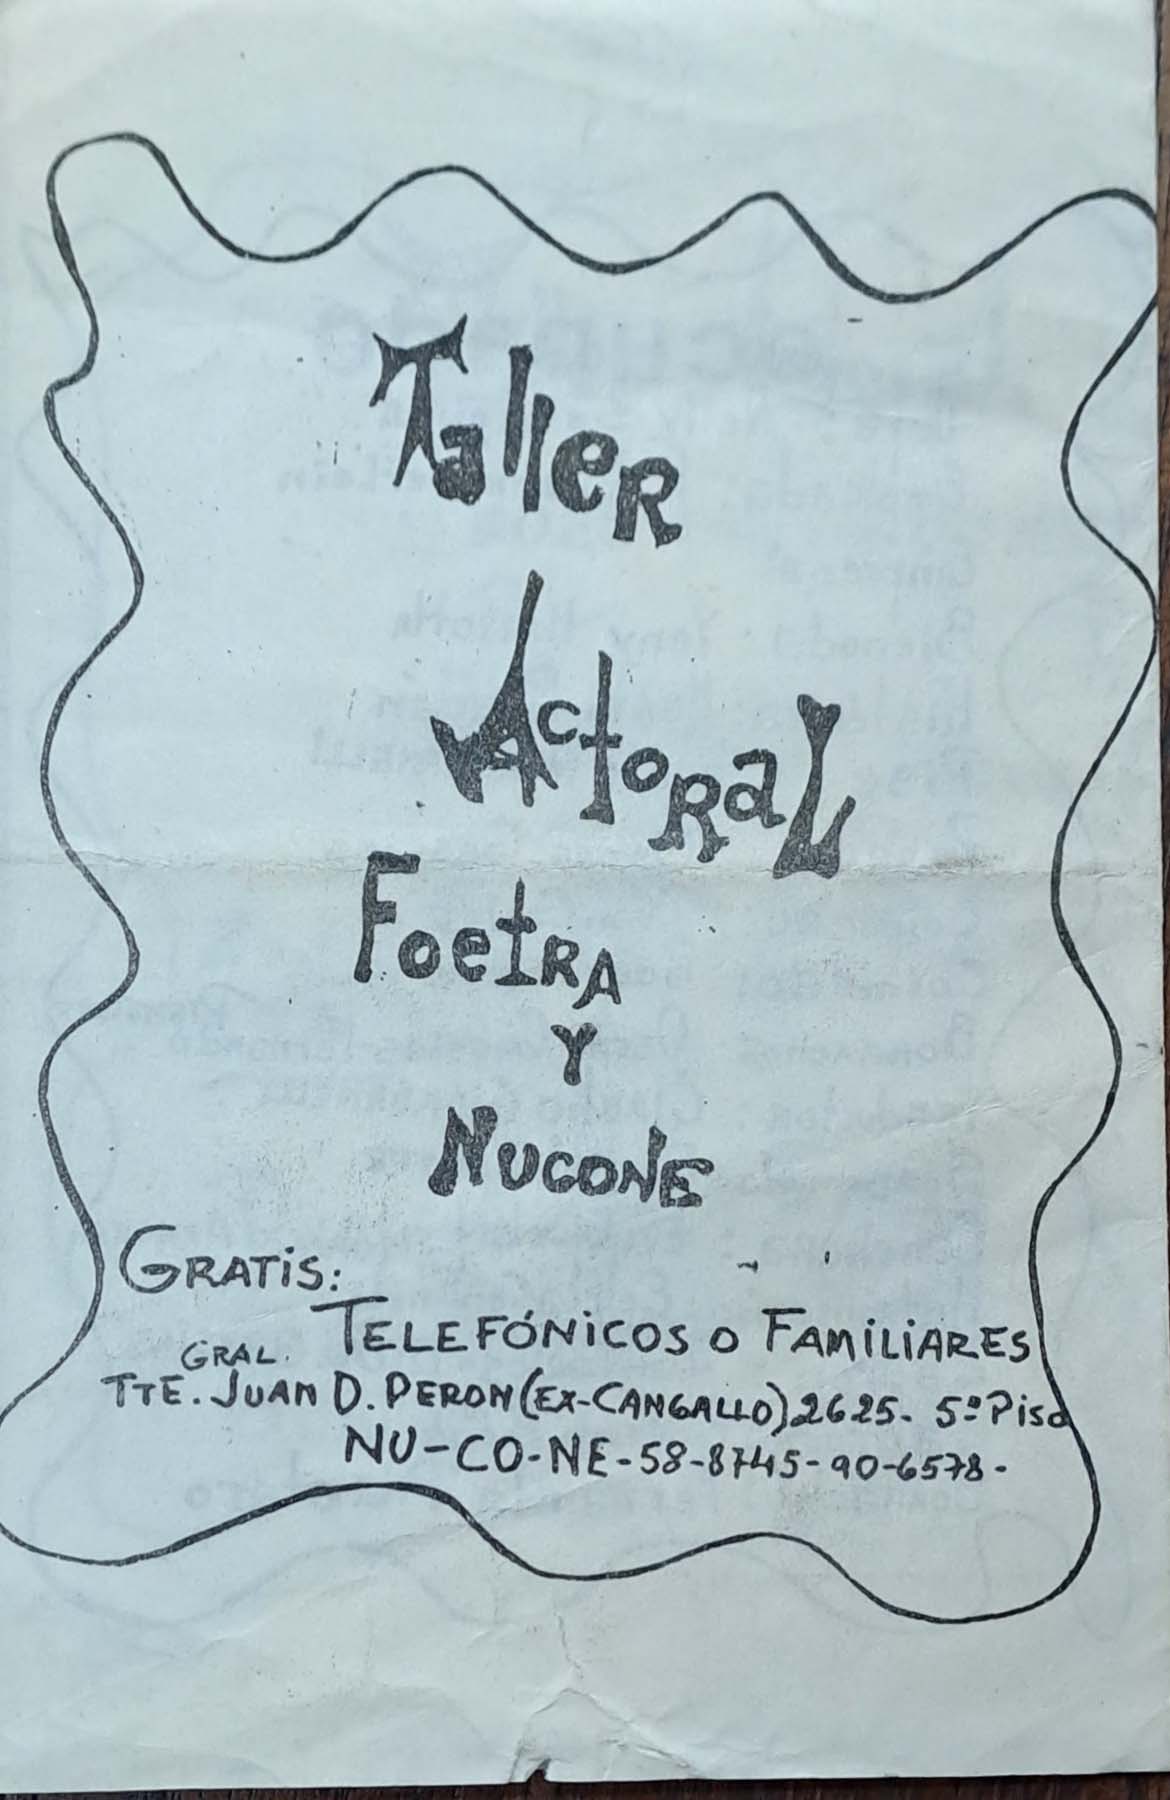 Taller
Actoral
Foetra
Y
Nucone
GRATIS:
TELEFÓNICOS O FAMILIARES
GRAL.
TTE. JUAN D. PERON (EX-CANGALLO) 2625- 5º Piso
NU-CO-NE-58-8745-90-6578-